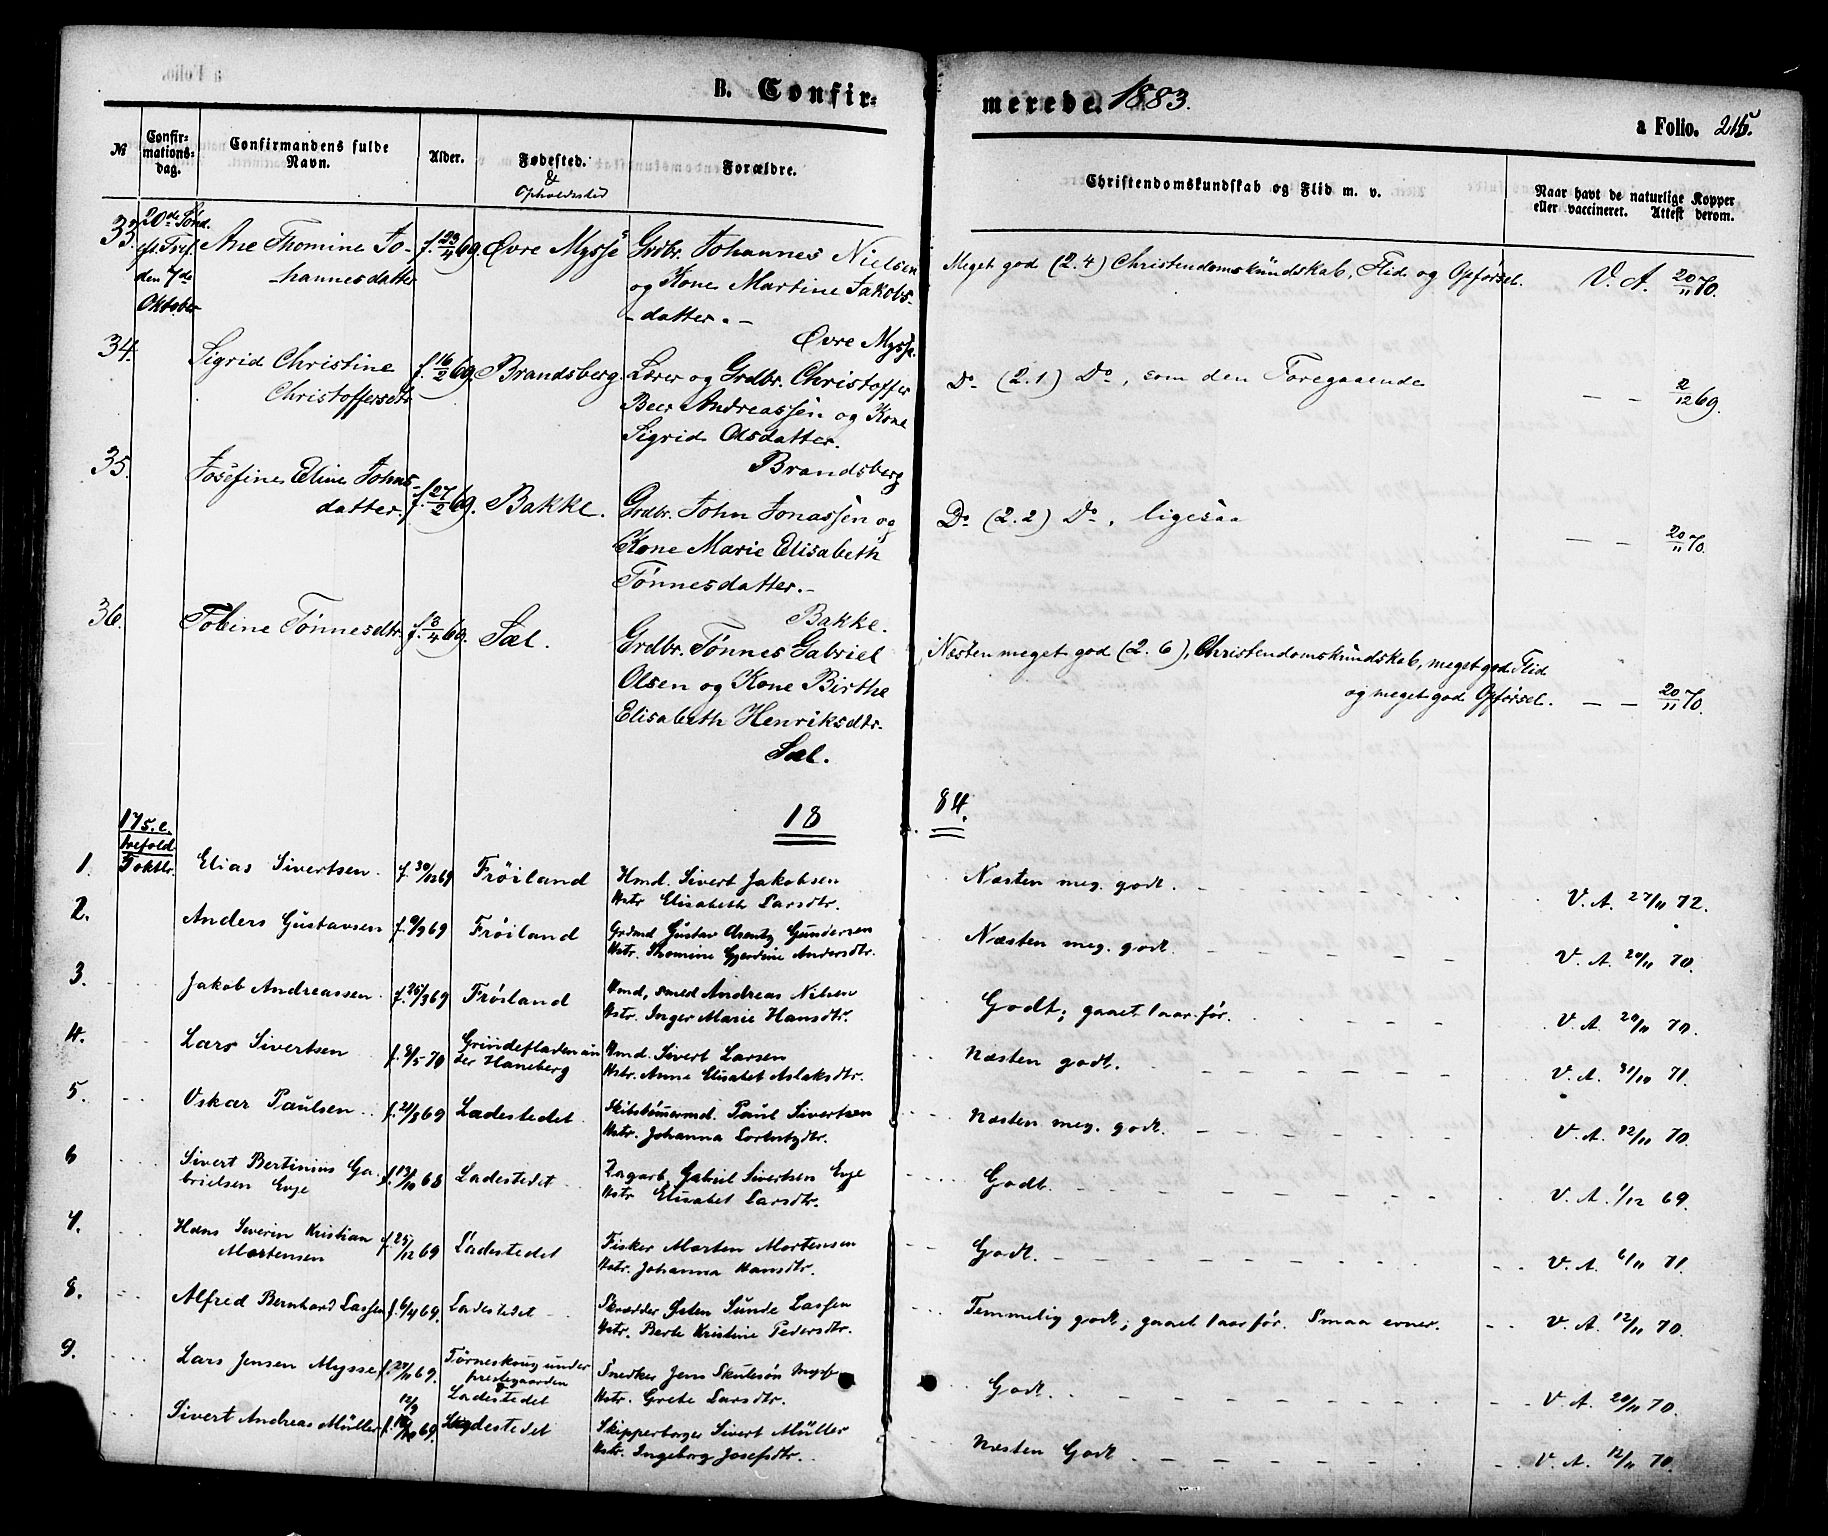 B. Confir-
merede. 1883.
a Folio. 215.
№
Confir-
mations-
dag.
Confirmandens fulde
Navn.
Alder.
Fødested.
&
Opholdssted
Forældre.
Christendomskundskab og Flid m. v.
Naar havt de naturlige Kopper
eller vaccineret. Attest derom.
33. 20de Sønd. Ane Thomine Jo- f. 23/4 69. Øvre Mysse Grdbr. Johannes Nielsen Meget god (2.4) Christendomskundskab, Flid og Opførsel. V. A. 20/11 70.
ef. Tref. hannesdatter og Kone Martine Jakobs-
den 7de -datter. -
Oktober Øvre Mysse.
34. Sigrid Christine f. 16/2 69. Brandsberg. Lærer og Grdbr. Christoffer Do (2.1) Do, som den Foregaaende — — 2/12 69.
Christoffersdtr. Beer Andreassen og Kone
Sigrid Olsdatter.
Brandsberg
35. Josefine Eline Johns- f. 27/2 69. Bakke. Grdbr. John Jonassen og Do (2.2) Do, ligesaa — — 20/11 70.
datter. Kone Marie Elisabeth
Tønnesdatter.-
Bakke.
36. Tobine Tønnesdtr. f. 3/4 69. Sæl. Grdbr. Tønnes Gabriel Næsten meget god (2.6), Christendomskundskab, meget god Flid
Olsen og Kone Birthe og meget god Opførsel. — — 20/11 70.
Elisabeth Henriksdtr.
Sæl.
18 84.
17 s. e.
trefold.
5 oktbr.
1. Elias Sivertsen. f. 30/12 69 Frøiland Hmd. Sivert Jakobsen Næsten meg. godt. V. A. 27/11 72.
Hstr Elisabeth Larsdtr.
2. Anders Gustavsen f. 9/9 69 Frøiland Grdmd Gustav Arentz Gundersen Næsten meg. godt V. A. 20/11 70.
Hstr. Thomine Gjerdine Andersdtr.
3. Jakob Andreassen. f. 26/3 69 Frøiland Hmd, smed Andreas Nilsen Godt; gaaet 1 aar før. V. A. 20/11 70.
Hstr. Inger Marie Hansdtr.
4. Lars Sivertsen f. 8/5 70 Grindefladen un Hmd. Sivert Larsen Næsten godt. V. A. 31/10 71.
der Haneberg Hstr. Anne Elisabet Aslaksdtr.
5. Oskar Paulsen f. 21/8 69 Ladestedet Skibstømermd. Paul Sivertsen Næsten meg. godt. V. A. 12/11 70.
Hstr. Johanna Lorentzdtr.
6 Sivert Bertinius Ga- f. 13/10 68 Ladestedet Zagarb. Gabriel Sivertsen Evje Godt. V. A. 1/12 69.
brielsen Evje Hstr Elisabet Larsdtr.
7. Hans Severin Kristian f. 25/12 69 Ladestedet Fisker Morten Mortensen Godt. V. A. 6/11 71.
Mortensen Hstr. Johanna Hansdtr.
8. Alfred Bernhard Lassen f. 6/4 69. Ladestedet Skrædder Østen Sunde Lassen Temmelig godt; gaaet 1 aar før. Smaa evner. V. A. 12/11 70.
Hstr. Berte Kristine Pedersdtr.
9. Lars Jensen Mysse f. 20/11 69. Tørneskrug under Snedker Jens Skulesøn Mysse Godt. V. A. 20/11 70.
prestegaarden Hstr. Grete Larsdtr.
Ladestedet
Sivert Andreas Müller 69. Ladestedet Skipperborger Sivert Müller Næsten Godt V. A. 12/11 70.
Hstr. Ingeborg Josefsdtr.